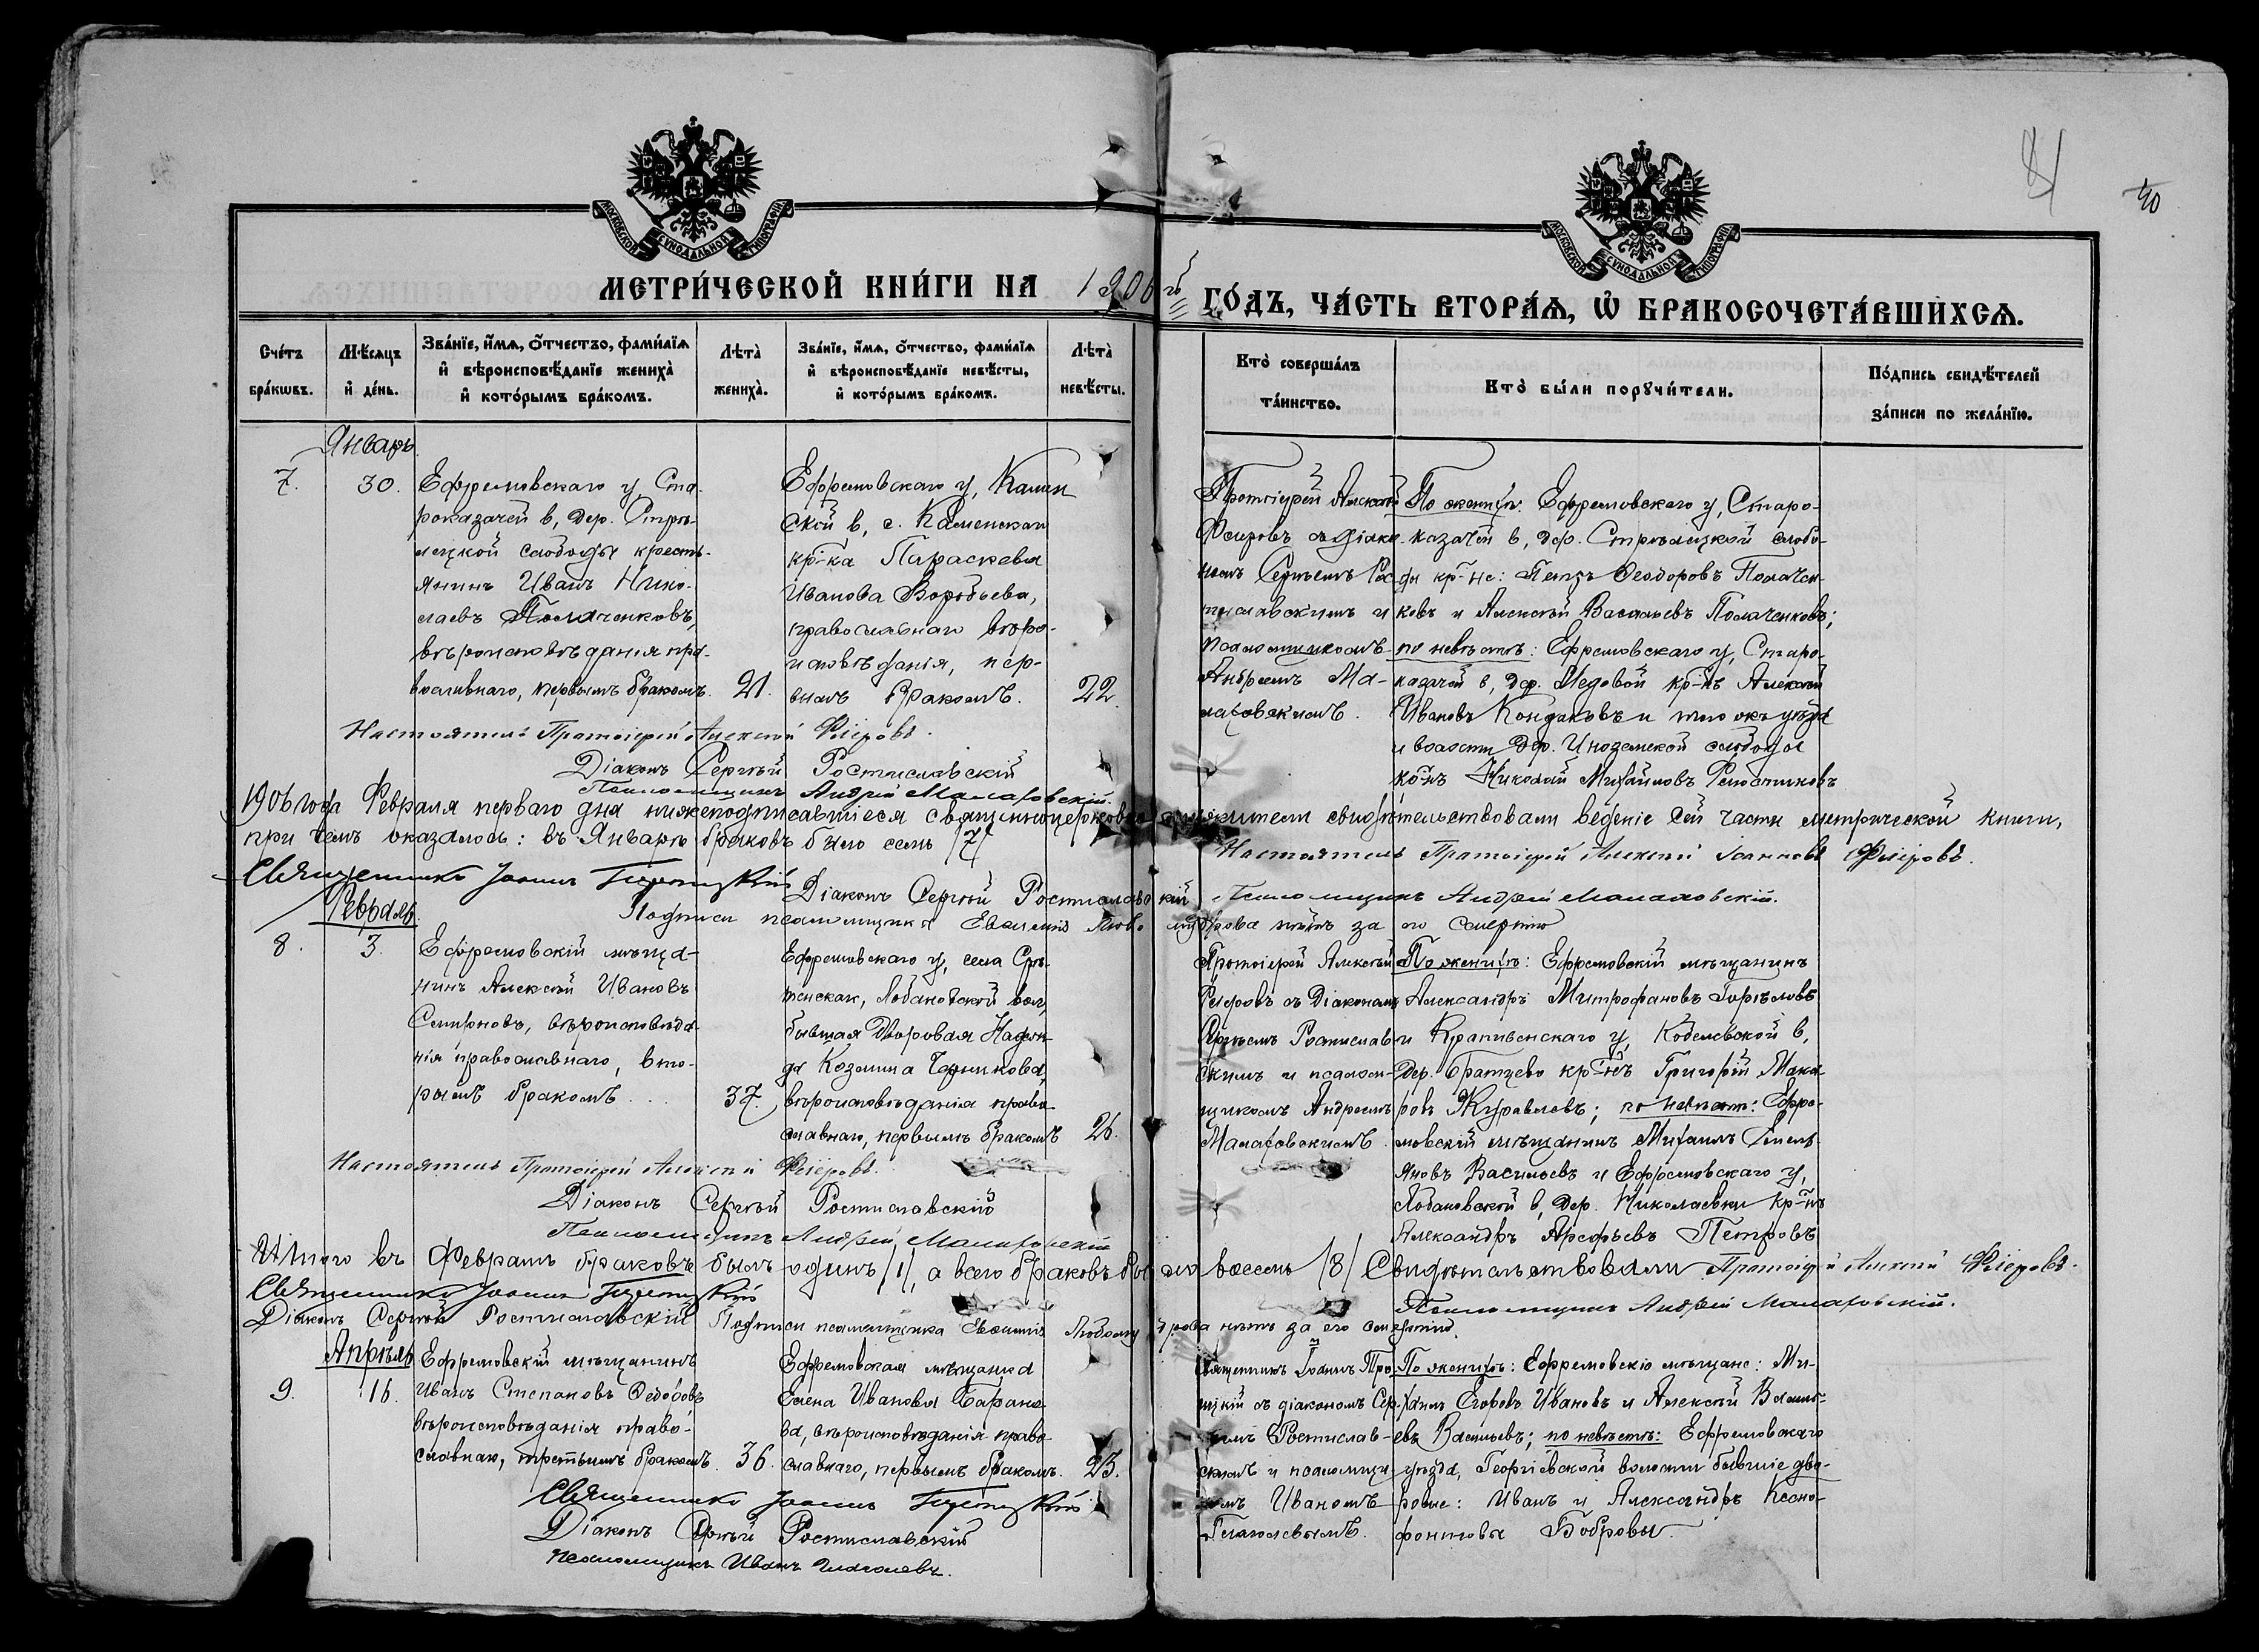 41
40
МОСКОВСКОЙ СѴНОДАЛЬНОЙ ТИПОГРАФІИ
МЕТРИ́ЧЕСКОЙ КНИ́ГИ НА 1906й
Сче́тъ бра́кωвъ.
Мѣ́сяцъ и҆ де́нь.
Зва́нїе, и҆́мѧ, ѻ҆́тчество, фами́лїѧ и҆ вѣроисповѣ́данїе жениха̀ и҆ кото́рымъ бра́комъ.
Лѣ́та жениха̀.
Зва́нїе, и҆́мѧ, ѻ҆́тчество, фами́лїѧ и҆ вѣроисповѣ́данїе невѣ́сты, и҆ кото́рымъ бра́комъ.
Лѣ́та невѣ́сты.
МОСКОВСКОЙ СѴНОДАЛЬНОЙ ТИПОГРАФІИ
ГО́ДЪ, ЧА́СТЬ ВТОРА́Ѧ, Ѽ БРАКОСОЧЕТА́ВШИХСѦ.
Кто̀ соверша́лъ та́инство.
Кто̀ бы́ли порꙋчи́тели.
По́дпись свидѣ́телей за́писи по жела́нїю.
Январь
7. 30.
Ефремовскаго у, Ста-
роказачей в, дер. Стрѣ-
лецкой слободы кресть-
янинъ Иванъ Нико-
лаевъ Полаченковъ,
вѣроисповѣданія пра-
вославнаго, первымъ бракомъ. 21.
Ефремовскаго у, Камен
ской в, с. Каменскаго
кр-ка Параскева
Иванова Воробьева,
православнаго вѣро-
исповѣданія, пер-
вымъ бракомъ. 22.
Протоіерей Алексѣй
Флеровъ съ діако-
номъ Сергѣемъ Рос-
тиславскимъ и
псаломщикомъ
Андреемъ Ма-
лаховскимъ.
По женихѣ: Ефремовскаго у, Старо-
казачей в, дер. Стрѣлецкой слобо-
ды кр-не: Петръ Ѳеодоровъ Полачен-
ковъ и Алексѣй Васильевъ Полаченковъ;
по невѣстѣ: Ефремовскаго у, Старо-
казачей в, дер. Медовой кр-нъ Алексѣй
Ивановъ Кондаковъ и того жъ уѣзда
и волости дер. Иноземской слободы
кр-нъ Николай Михайловъ
Настоятель Протоіерей Алексій Флеровъ.
Діаконъ Сергѣй Ростиславскій
Псаломщикъ Андрей Малаховскій.
1906 года Февраля перваго дня нижеподписавшіеся священноцерковнослужители свидѣтельствовали веденіе сей части метрической книги,
при чемъ оказалось: въ Январѣ браковъ было семь /7/
Настоятель Протоіерей Алексій Іоанновъ Флеровъ.
Священникъ Іоаннъ Троицкій
Діаконъ Сергѣй Ростиславскій Псаломщикъ Андрей Малаховскій.
Подписи псаломщика Евфимія Любомудрова нѣтъ за его смертію
Февраль.
8. 3.
Ефремовскій мѣща-
нинъ Алексѣй Ивановъ
Смирновъ, вѣроисповѣда-
нія православнаго, вто-
рымъ бракомъ... 37.
Ефремовскаго у, села Срѣ-
тенскаго, Лобановской вол,
бывшая дворовая Надеж-
да Козмина
вѣроисповѣданія право-
славнаго, первымъ бракомъ 26.
Протоіерей Алексѣй
Флеровъ съ Діакономъ
Сергѣемъ Ростислав-
скимъ и псалом-
щикомъ Андреемъ
Малаховскимъ.
По женихѣ: Ефремовскій мѣщанинъ
Александръ Митрофановъ Горѣловъ
и Крапивенскаго у, Кобелевской в,
дер. Братцево кр-нъ Григорій Мака-
ровъ Журавлевъ; по невѣстѣ: Ефре-
мовскій мѣщанинъ Михаилъ Емель-
яновъ Васильевъ и Ефремовскаго у,
Лобановской в, дер. Николаевки кр-нъ
Александръ Арефьевъ Петровъ
Настоятель Протоіерей Алексій Флеровъ.
Діаконъ Сергѣй Ростиславскій
Псаломщикъ Андрей Малаховскій
Итого въ Февралѣ браковъ былъ одинъ /1/, а всего браковъ было восемь /8/ Свидѣтельствовали Протоіерей Алексій Флеровъ.
Священникъ Іоаннъ Троицкій
Псаломщикъ Андрей Малаховскій.
Діаконъ Сергѣй Ростиславскій Подписи псаломщика Евфимія Любомудрова нѣтъ за его смертію.
Апрѣль
9. 16.
Ефремовскій мѣщанинъ
Иванъ Степановъ
вѣроисповѣданія право-
славнаго, третьимъ бракомъ. 36.
Ефремовская мѣщанка
Елена Иванова Барано-
ва, вѣроисповѣданія право-
славнаго, первымъ бракомъ. 23.
Священникъ Іоаннъ Тро-
ицкій съ діакономъ Сер-
гѣемъ Ростислав-
скимъ и псаломщи-
комъ Иваномъ
Глаголевымъ.
По женихѣ: Ефремовскіе мѣщане: Ми-
хаилъ Егоровъ Ивановъ и Алексѣй Василь-
евъ Васильевъ; по невѣстѣ: Ефремовскаго
уѣзда, Георгіевской волости бывшіе дво-
ровые: Иванъ и Александръ Ксено-
фонтовы Бобровы.
Священникъ Іоаннъ Троицкій
Діаконъ Сергѣй Ростиславскій
Псаломщикъ Иванъ Глаголевъ.